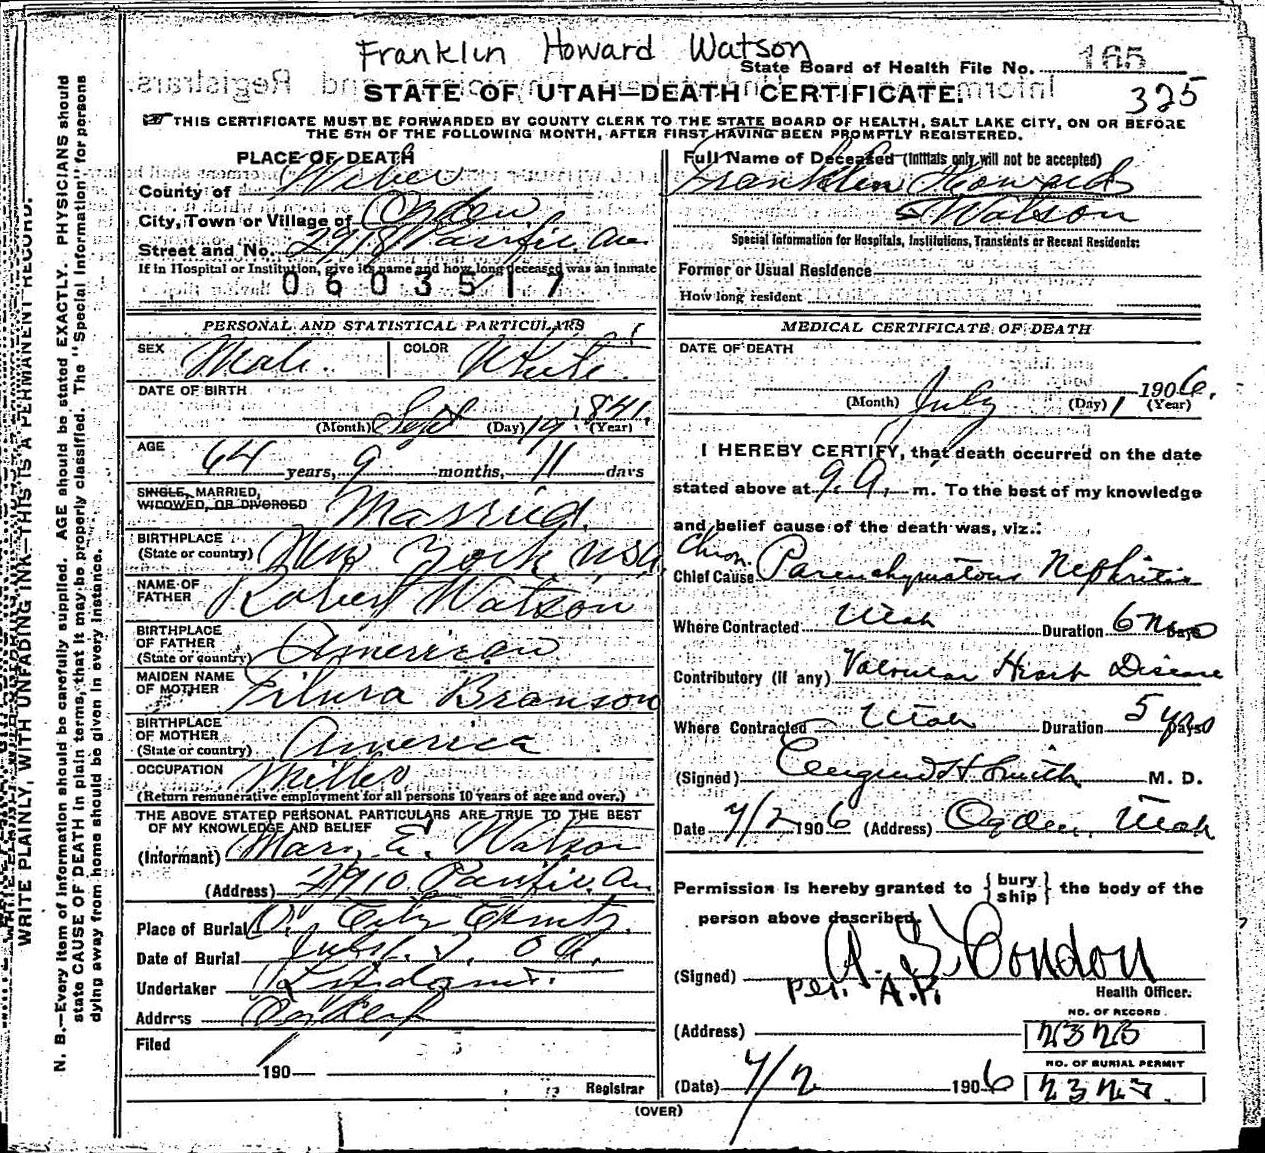 Franklin Howard Watson
State Board of Health File No. 165
STATE OF UTAH—DEATH CERTIFICATE.
325
THIS CERTIFICATE MUST BE FORWARDED BY COUNTY CLERK TO THE STATE BOARD OF HEALTH, SALT LAKE CITY, ON OR BEFORE
THE 5TH OF THE FOLLOWING MONTH, AFTER FIRST HAVING BEEN PROMPTLY REGISTERED.
PLACE OF DEATH
County of Weber
City, Town or Village of Ogden
Street and No. 2918 Pacific Ave
If in Hospital or Institution, give its name and how long deceased was an inmate
0603517
PERSONAL AND STATISTICAL PARTICULARS
SEX Male. COLOR White.
DATE OF BIRTH
(Month) Sept (Day) 19 (Year) 1841.
AGE
64 years, 9 months, 11 days
SINGLE, MARRIED,
WIDOWED, OR DIVORCED Married.
BIRTHPLACE
(State or country) New York USA.
NAME OF
FATHER Robert Watson
BIRTHPLACE
OF FATHER
(State or country) American
MAIDEN NAME
OF MOTHER Branson
BIRTHPLACE
OF MOTHER
(State or country) America
OCCUPATION Miller
(Return remunerative employment for all persons 10 years of age and over.)
THE ABOVE STATED PERSONAL PARTICULARS ARE TRUE TO THE BEST
OF MY KNOWLEDGE AND BELIEF
(Informant) E. Watson
(Address) 2910 Pacific Av
Place of Burial City
Date of Burial
Undertaker
Address
Filed
190
Registrar
Full Name of Deceased (Initials only will not be accepted)
Franklin Howard
Watson
Special Information for Hospitals, Institutions, Transients or Recent Residents:
Former or Usual Residence
How long resident
MEDICAL CERTIFICATE OF DEATH
DATE OF DEATH
(Month) July (Day) 1 1906. (Year)
I HEREBY CERTIFY, that death occurred on the date
stated above at 9. A. m. To the best of my knowledge
and belief cause of the death was, viz.:
Chief Cause Chron. Parenchymatous Nephritis
Where Contracted Utah Duration 6 Days
Contributory (if any) Valvular Heart Disease
Where Contracted Utah Duration 5 yrs Days
(Signed) H Smith M. D.
Date 7/2 1906 (Address) Ogden, Utah
Permission is hereby granted to {bury ship} the body of the
person above described.
(Signed) A. S. Condon
per. A.P. Health Officer.
(Address) NO. OF RECORD
2323
(Date) 7/2 1906 NO. OF BURIAL PERMIT
(OVER)
WRITE PLAINLY, WITH UNFADING INK—THIS IS A PERMANENT RECORD.
N. B.—Every item of information should be carefully supplied. AGE should be stated EXACTLY. PHYSICIANS should
state CAUSE OF DEATH in plain terms, that it may be properly classified. The "Special Information" for persons
dying away from home should be given in every instance.